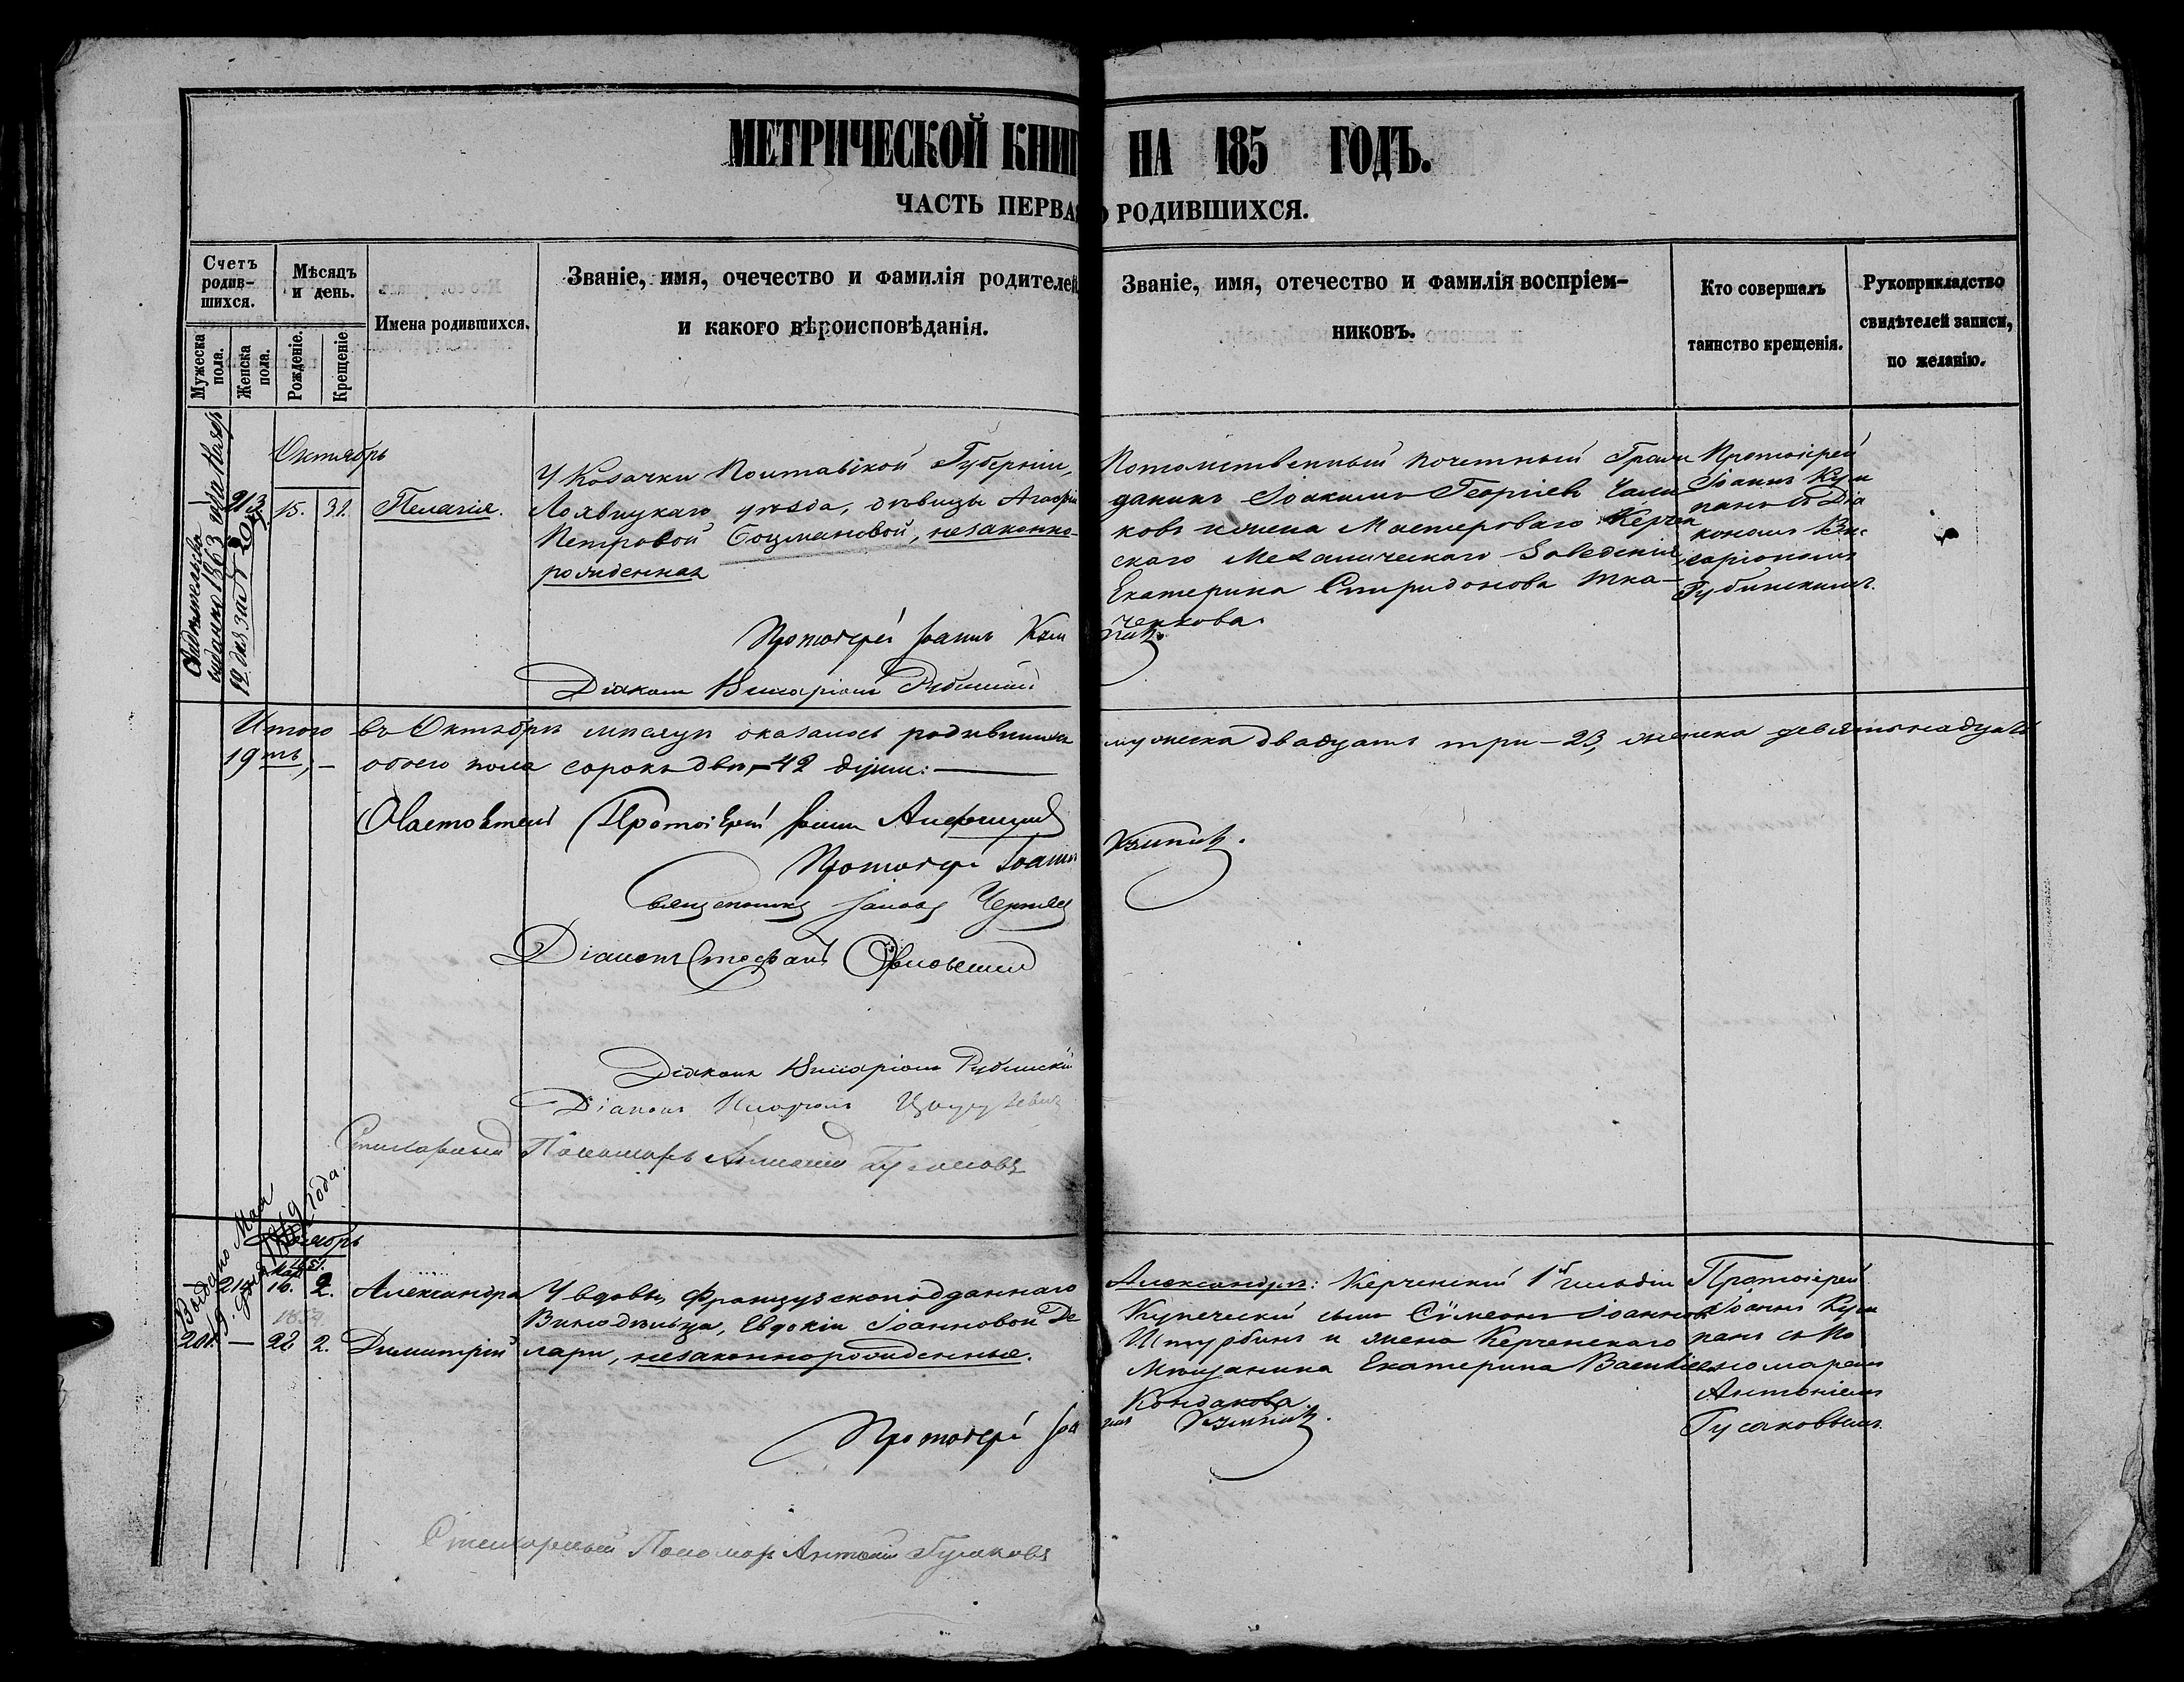 МЕТРИЧЕСКОЙ КНИГ НА 185 ГОДЪ.
ЧАСТЬ ПЕРВАЯ О РОДИВШИХСЯ.
Счетъ родив-шихся.
Мужеска пола.
Женска пола.
Мѣсяцъ и день.
Рожденіе.
Крещеніе
Имена родившихся.
Званіе, имя, очечество и фамилія родителей,
и какого вѣроисповѣданія.
Званіе, имя, отечество и фамилія воспріем-
никовъ.
Кто совершалъ
таинство крещенія.
Рукоприкладство
свидѣтелей записи,
по желанію.
Свидѣтельство
выдано 1863 года
12 дня за №
Октябрь
213. 15. 31. Пелагія.
У Козачки Полтавской Губерніи,
Лохвицкаго уѣзда, дѣвицы Агафіи
Петровой Боцмановой, незаконно-
рожденная
Потомственный почетный Граж
данинъ Іоакимъ Георгіевъ
ковъ и жена Мастероваго Керчен
скаго Механическаго Заведенія
Екатерина Спиридонова Тка-
ченкова.
Протоіерей
Іоаннъ Кум
панъ съ Діа
кономъ Вис
саріономъ
Рубинскимъ.
Протоіерей Іоаннъ Кумпанъ.
Діаконъ Виссаріонъ Рубинскій
Итого въ Октябрѣ мѣсяцѣ оказалось родившихся мужеска двадцать три - 23, женска девятьнадцать
19ть, - обоего пола сорокъ двѣ, - 42 души:
Настоятель Протоіерей Іоаннъ
Протоіерей Іоаннъ Кумпанъ.
Священникъ
Діаконъ Стефанъ
Діаконъ Виссаріонъ Рубинскій
Діаконъ
Стихарный Пономарь Антоній Гусаковъ
Выдано Мая
9 дня 1869 года.
Ноябрь
1851.
214. Мар. 16. 2. Александра
1854.
201. — 28. 2. Димитрій
У вдовы Французскоподданнаго
Винодѣльца, Евдокіи Іоанновой Де
лари, незаконнорожденные.
Александры: Керченскій 1й гильдіи
Купеческій сынъ Сѵмеонъ Іоанновъ
Штурбинъ и жена Керченскаго
Мѣщанина Екатерина Васильева
Кондакова.
Протоіерей
Іоаннъ Кум
панъ съ По
номаремъ
Антоніемъ
Гусаковымъ.
Протоіерей Іоаннъ Кумпанъ.
Стихарный Пономарь Антоній Гусаковъ